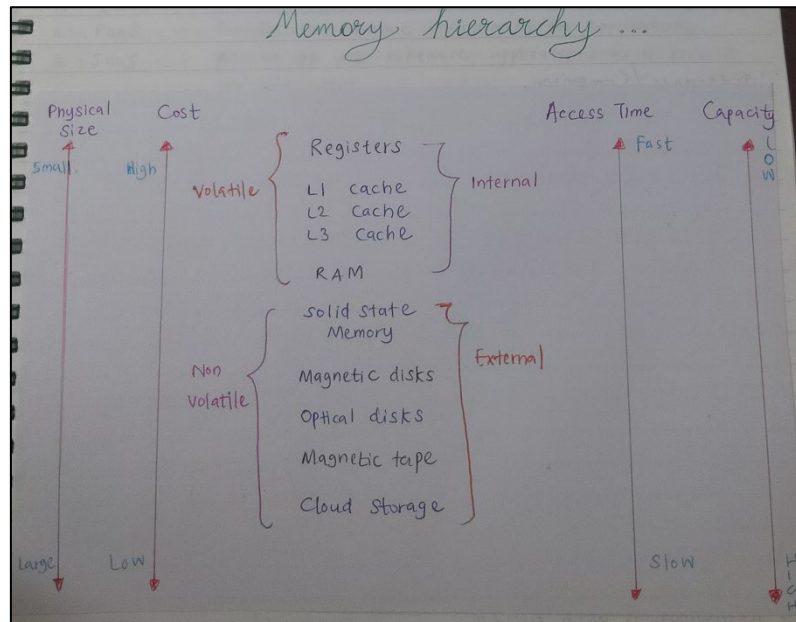 Memory hierarchy ...
Physical Size
Cost
Access Time
Capacity
Small
High
Fast
LOW
Volatile
Registers
L1 cache
L2 Cache
L3 Cache
RAM
Internal
Non Volatile
Solid State
Memory
Magnetic disks
Optical disks
Magnetic tape
Cloud Storage
External
Large
Low
Slow
HIGH